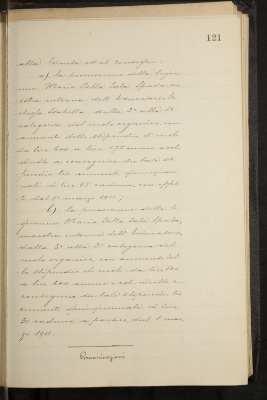 121
alla Giunta ed al consiglio:
a) la promozione della Signo
rina Maria Della Sala Spada, ma
estra interna dell'Educatorio
Isabella, dalla 2ª alla 1ª
categoria del ruolo organico, con
aumento dello stipendio di ruolo
da lire 600 a lire annue e col
diritto a conseguire su tale sti
pendio tre aumenti quinquen
nali di lire 65 caduno, con
to dal 1º marzo 1911;
b) la promozione della Si
gnorina Maria Della Sala Spada,
maestra interna dell'Educatorio,
dalla 3ª alla 2ª categoria del
ruolo organico con aumento del
lo stipendio di ruolo da lire
a lire 600 annue e col diritto a
conseguire, su tale stipendio tre
aumenti quinquennali di lire
60 caduno, a partire dal 1º mar
zo 1911.